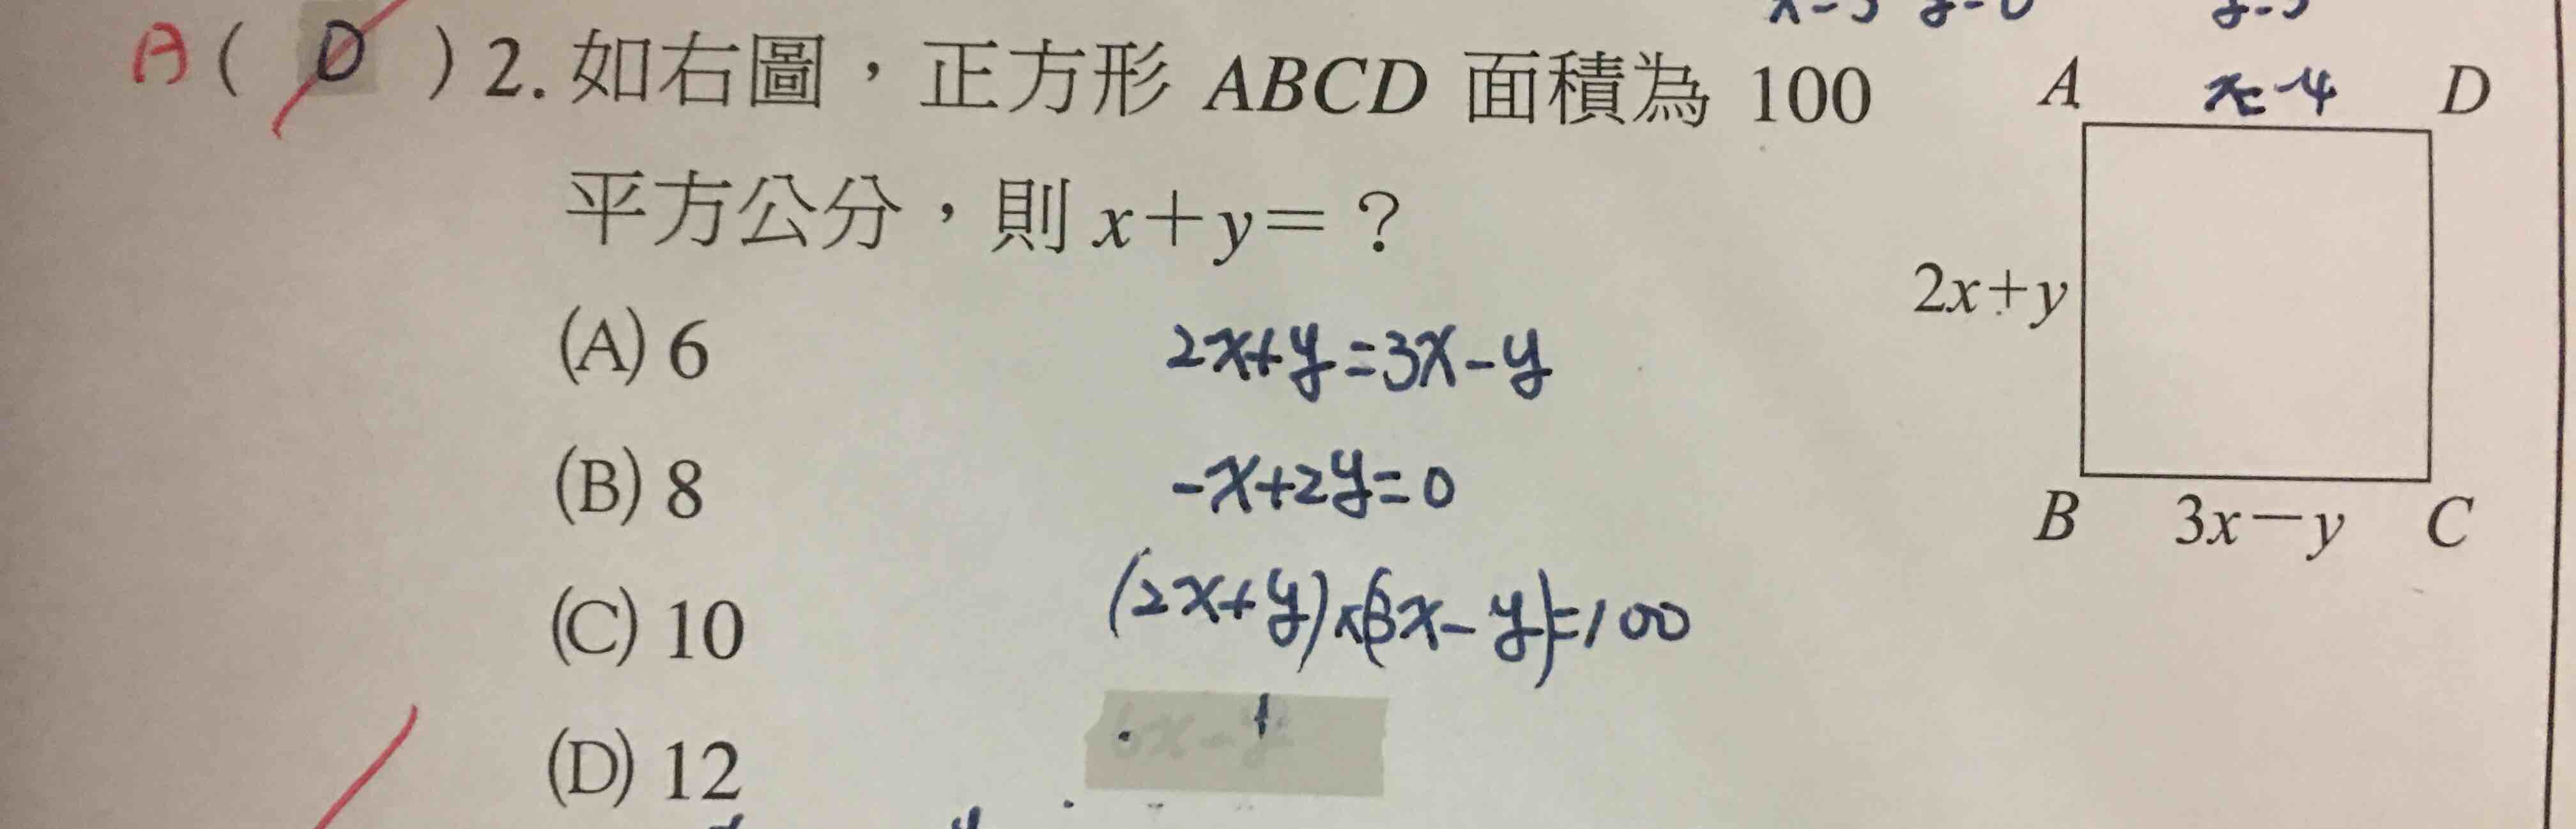 A ( D ) 2. 如右圖，正方形 ABCD 面積為 100
平方公分，則 x＋y＝？
(A) 6
(B) 8
(C) 10
(D) 12
2x+y=3x-y
-x+2y=0
(2x+y)×(3x-y)=100
A D
2x＋y
B 3x－y C